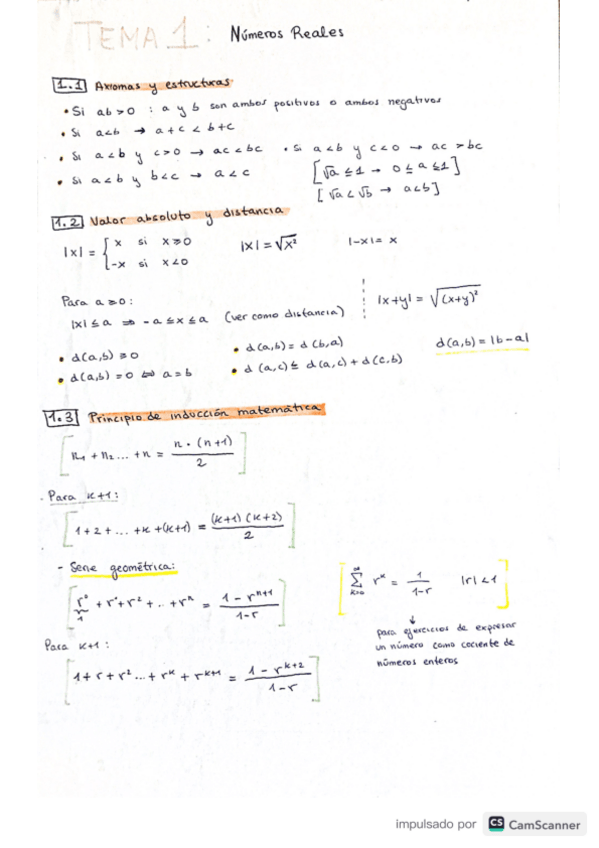 TEMA 1: Números Reales
1.1 Axiomas y estructuras
• Si ab>0 : a y b son ambos positivos o ambos negativos
• Si a<b → a+c < b+c
• Si a<b y c>0 → ac<bc • Si a<b y c<0 → ac>bc
• Si a<b y b<c → a<c [√a ≤ 1 → 0 ≤ a ≤ 1]
[√a < √b → a<b]
1.2 Valor absoluto y distancia
|x| = { x si x≥0 |x| = √x² |-x| = x
-x si x<0
Para a≥0:
|x| ≤ a ⇒ -a ≤ x ≤ a (ver como distancia) |x+y| = √(x+y)²
• d(a,b) ≥ 0 • d(a,b) = d(b,a) d(a,b) = |b-a|
• d(a,b) = 0 ⇔ a=b • d(a,c) ≤ d(a,c) + d(c,b)
1.3 Principio de inducción matemática
[n₁ + n₂ ... + n = n·(n+1)/2]
. Para k+1:
[1+2+ ... +k+(k+1) = (k+1)(k+2)/2]
- Serie geométrica:
[r⁰ + r¹ + r² + .. + rⁿ = 1 - rⁿ⁺¹/1-r] [∑ rᵏ = 1/1-r |r|<1]
1 k=0 ∞
↓
para ejercicios de expresar
un número como cociente de
números enteros
Para k+1:
[1+r+r² ... + rᵏ + rᵏ⁺¹ = 1 - rᵏ⁺²/1-r]
impulsado por CS CamScanner